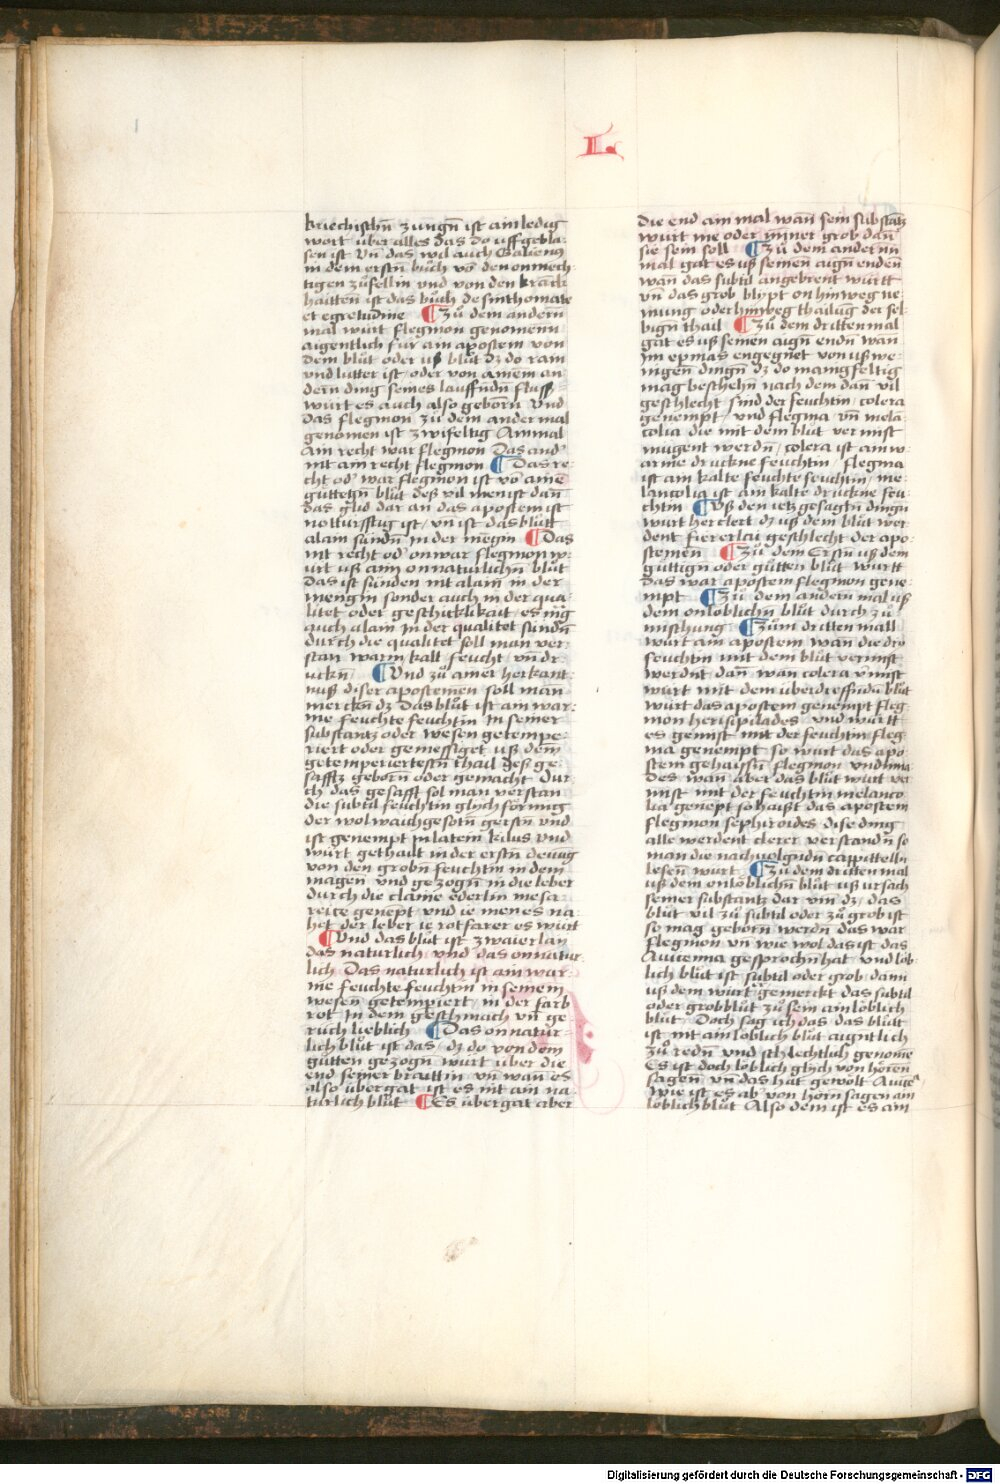 L.
kriechischn̄ zungn̄ ist ain ledig
wort über alles das do uffgebla-
sen ist Vn̄ das wil auch Galienus
in dem erstn̄ bůch võ den onmech-
tigen zůfellin vnd von den kranck
haitten ist das bůch de sinthomate
et egretudine ¶ Zu dem andern
mal wurt flegmon genomenn
aigentlich für ain apostem von
dem blůt oder uß blůt dz do rain
vnd lutter ist / oder von ainem an-
dern ding seines lauffndn̄ fluss
wurt es auch also geborn̄ Vnd
das flegmon zů dem ander mal
genomen ist zwifeltig Ainmal
Ain recht war flegmon Das and'
nit ain recht flegmon ¶ Das re-
cht od' war flegmon ist võ aine
gůttegn̄ blůt deß vil men ist dan̄
das glid dar an das apostem ist
notturfftig ist / vn̄ ist das blůtt
alain sündn̄ in der mengin ¶ Das
nit recht od' onwar flegmon w-
urt uß aim onnaturlichn̄ blůt
das ist sünden nit alain in der
mengin sonder auch in der qua-
litet oder geschicklikait / es mg̃
auch alain in der qualitet sündn̄
durch die qualitet soll man ver-
stan warm kalt feucht vn̄ dr-
uckn̄ ¶ Vnd zů ainer herkant-
nuß diser apostemen soll man
mercken dz das blůt ist ain war-
me feuchte feuchtin in seiner
substantz oder wesen getempe-
riert oder gemessiget uß dem
getemperiertestn̄ thail deß ge-
saffts geborn̄ oder gemacht Dur-
ch das gesafft sol man verstan
die subtil feuchtin glych förmig
der wol waichgesotn̄ gerstn̄ vnd
ist genempt in latein kilus Vnd
würt gethailt in der erstn̄ deuug̃
von den grobn̄ feuchtin in dem
magen vnd gezogn̄ in die leber
durch die claine ederlin mesa-
raice genẽpt vnd ie men es na-
het der leber ie rotfarer es würt
¶ Vnd das blůt ist zwaierlay
das naturlich vnd das onnatur-
lich Das naturlich ist ain war-
me feuchte feuchtin in seinem
wesen getempiert / in der farb
rot in dem geschmach vn̄ ge-
ruch lieblich ¶ Das onnatür-
lich blůt ist das / dz do von dem
gůtten gezogn̄ würt über die
end seiner braittin vn̄ wan̄ es
also übergat ist es nit ain na-
türlich blůt ¶ Es übergat aber
die end ain mal wan̄ sein substãtz
wurt me oder miner grob dan̄
sie sein soll ¶ Zů dem andernn
mal gat es uß seinen aign̄ enden
wan̄ das subtil angebrent württ
vn̄ das grob blypt on hinweg ne-
mung oder hinweg thailũg der sel-
bign̄ thail ¶ Zů dem dritten mal
gat es uß seinen aign̄ endn̄ wan̄
im epmas engegnet von uß we-
nigen dingn̄ dz do maingfeltig
mag beschehn̄ nach dem dan̄ vil
geschlecht sind der feuchtin / colera
genempt / vnd flegma vn̄ mela-
colia die mit dem blůt vermist
mugent werdn̄ / colera ist ain w-
arme druckne feuchtin / flegma
ist ain kalte feuchte feuchtin / me-
lancolia ist ain kalte druckne feu-
chtin ¶ Uß den ietz gesagtn̄ dingn̄
wurt herclert dz uß dem blůt wer-
dent fiererlai geschlecht der apo-
stemen ¶ Zů dem Ersten uß dem
güttign̄ oder gůtten blůt wurtt
das war apostem flegmon gene-
mpt ¶ Zů dem andern mal uß
dem onlöblichn̄ blůt durch zů
mischung ¶ Zům dritten mall
wurt ain apostem wan̄ die dry
feuchtin mit dem blůt vermist
werdnt dan̄ wan̄ colera v'mist
würt mit dem überdreffndn̄ blůt
würt das apostem genempt fleg-
mon herisipilades vnd württ
es gemist mit der feuchtin fleg-
ma genempt so wurt das apo-
stem gehaissn̄ flegmon vndimia
des wan̄ aber das blůt wurt ver-
mist mit der feuchtin melanco-
lia genẽpt so haißt das apostem
flegmon sephiroides dise ding
alle werdent clerer verstandn̄ so
man die nachuolgndn̄ cappitteln
lesen wurt ¶ Zů dem dritten mal
uß dem onlöblichn̄ blůt uß ursach
seiner substantz dar vm̄ dz / das
blůt vil zů subtil oder zů grob ist
so mag geborn̄ werdn̄ das war
flegmon vn̄ wie wol das ist das
Auicenna gesprochn̄ hat vnd löb-
lich blůt ist subtil oder grob dann
uß dem würt gemerckt das subtil
oder grobblůt zů sein ain löblich
blůt / Doch sag ich das das blůtt
ist nit ain löblich blůt aigntlich
zů redn̄ vnd schlechtlich genom̃e
Es ist doch löblich glych von hören
sagen vn̄ das hat gewölt Auice
Wie ist es ab' von hörn sagen ain
löblich blůt Also dem ist es ain
Digitalisierung gefördert durch die Deutsche Forschungsgemeinschaft - DFG